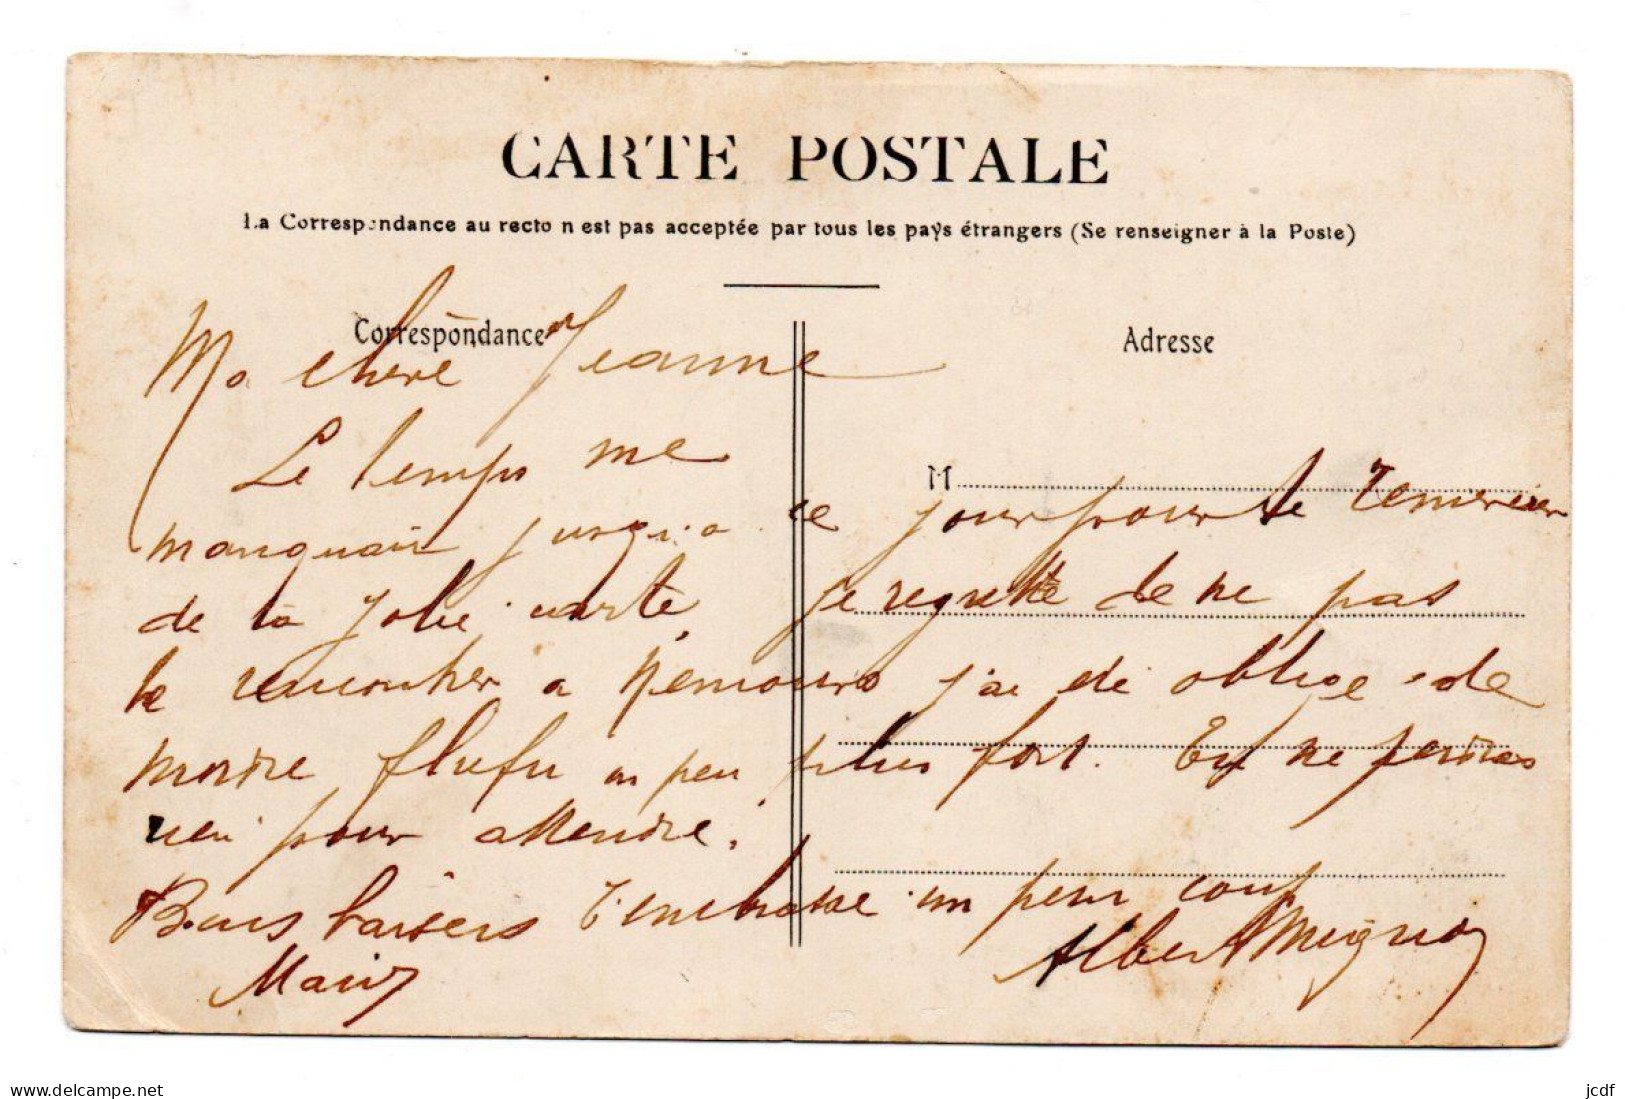 CARTE POSTALE
La Correspondance au recto n'est pas acceptée par tous les pays étrangers (Se renseigner à la Poste)
Correspondance
Adresse
M
Ma chère Jeanne
Le temps me
manquait jusqu'a ce jour pour te remercier
de ta jolie carte, je regrette de ne pas
te rencontrer a Nemours j'ai été oblige de
mordre un peu plus fort. Tu ne perdras
rien pour attendre.
Bons baisers t'embrasse un peu
Marie
Albert Mignon
www.delcampe.net
jcdf